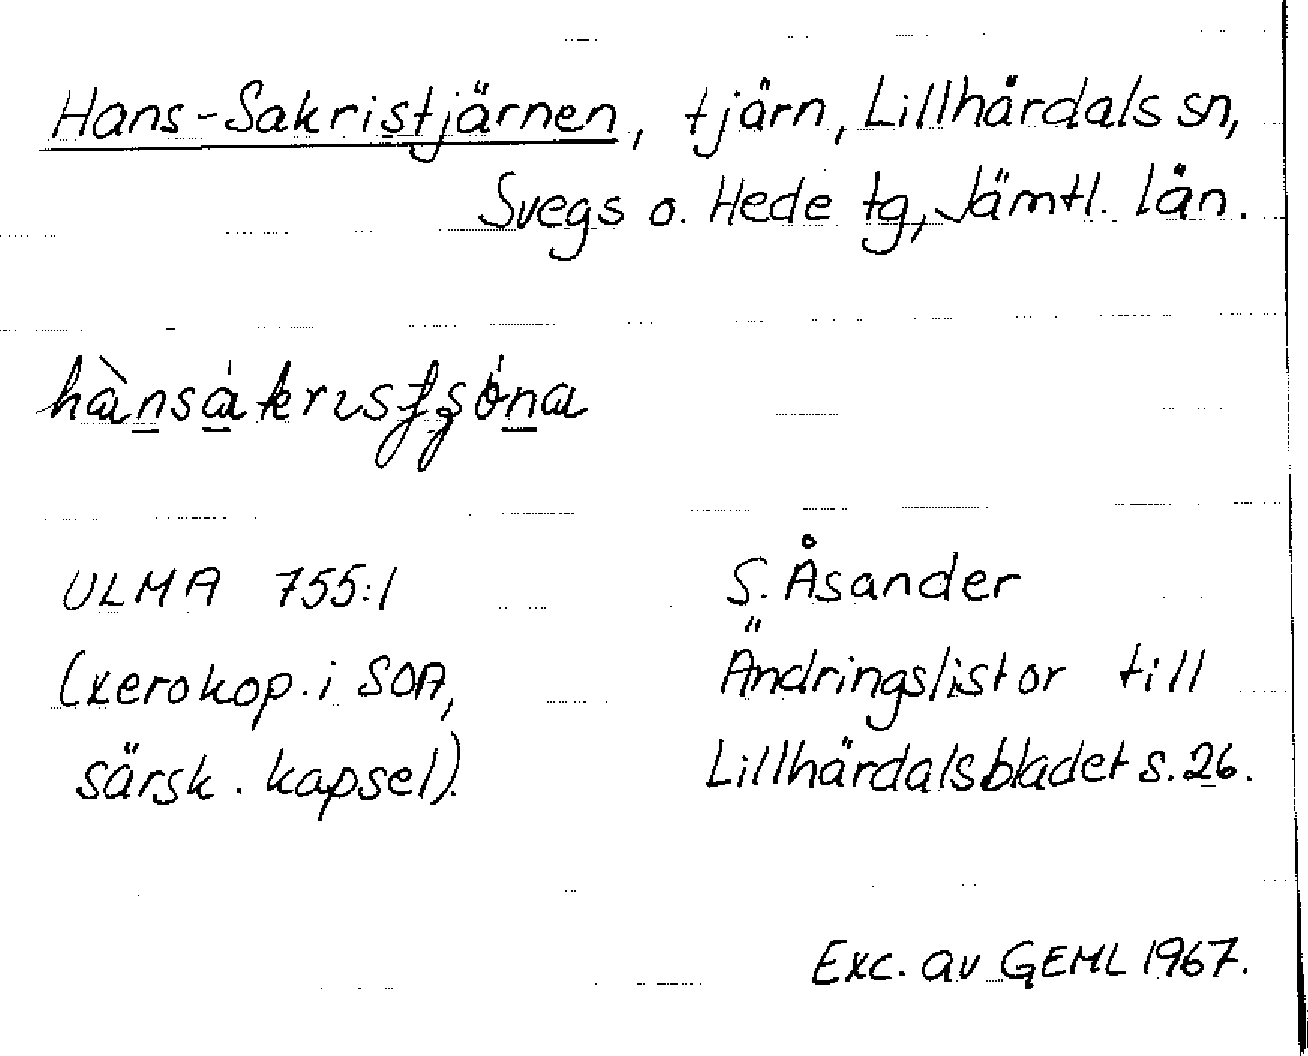 Hans-Sakristjärnen, tjärn, Lillhärdals sn,
Svegs o. Hede tg, Jämtl. län.
ULMA 755:1
(xerokop. i SOA,
särsk. kapsel).
S. Åsander
Ändringslistor till
Lillhärdalsbladet s. 26.
Exc. av GEML 1967.